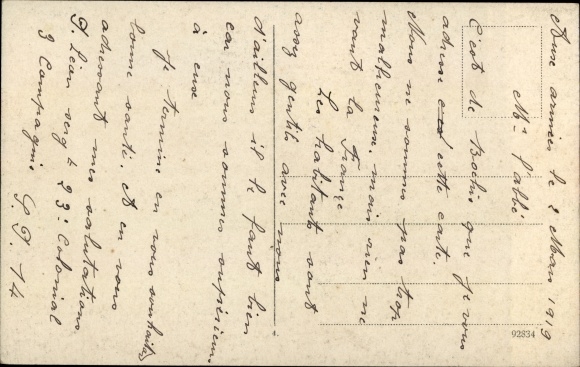 Aux armées le 2 Mars 1919
Mr l'abbé
C'est de Bochie que je vous
adresse cette carte.
Nous ne sommes pas trop
malheureux. mais rien ne
vaut la France
Les habitants sont
assez gentils avec nous
d'ailleurs il le faut bien
car nous sommes supérieurs
à eux
Je termine en vous souhaitant
bonne santé. et en vous
adressant mes salutations
P. Léon serg t 23e Colonial
3 Compagnie S.P. 14
92834